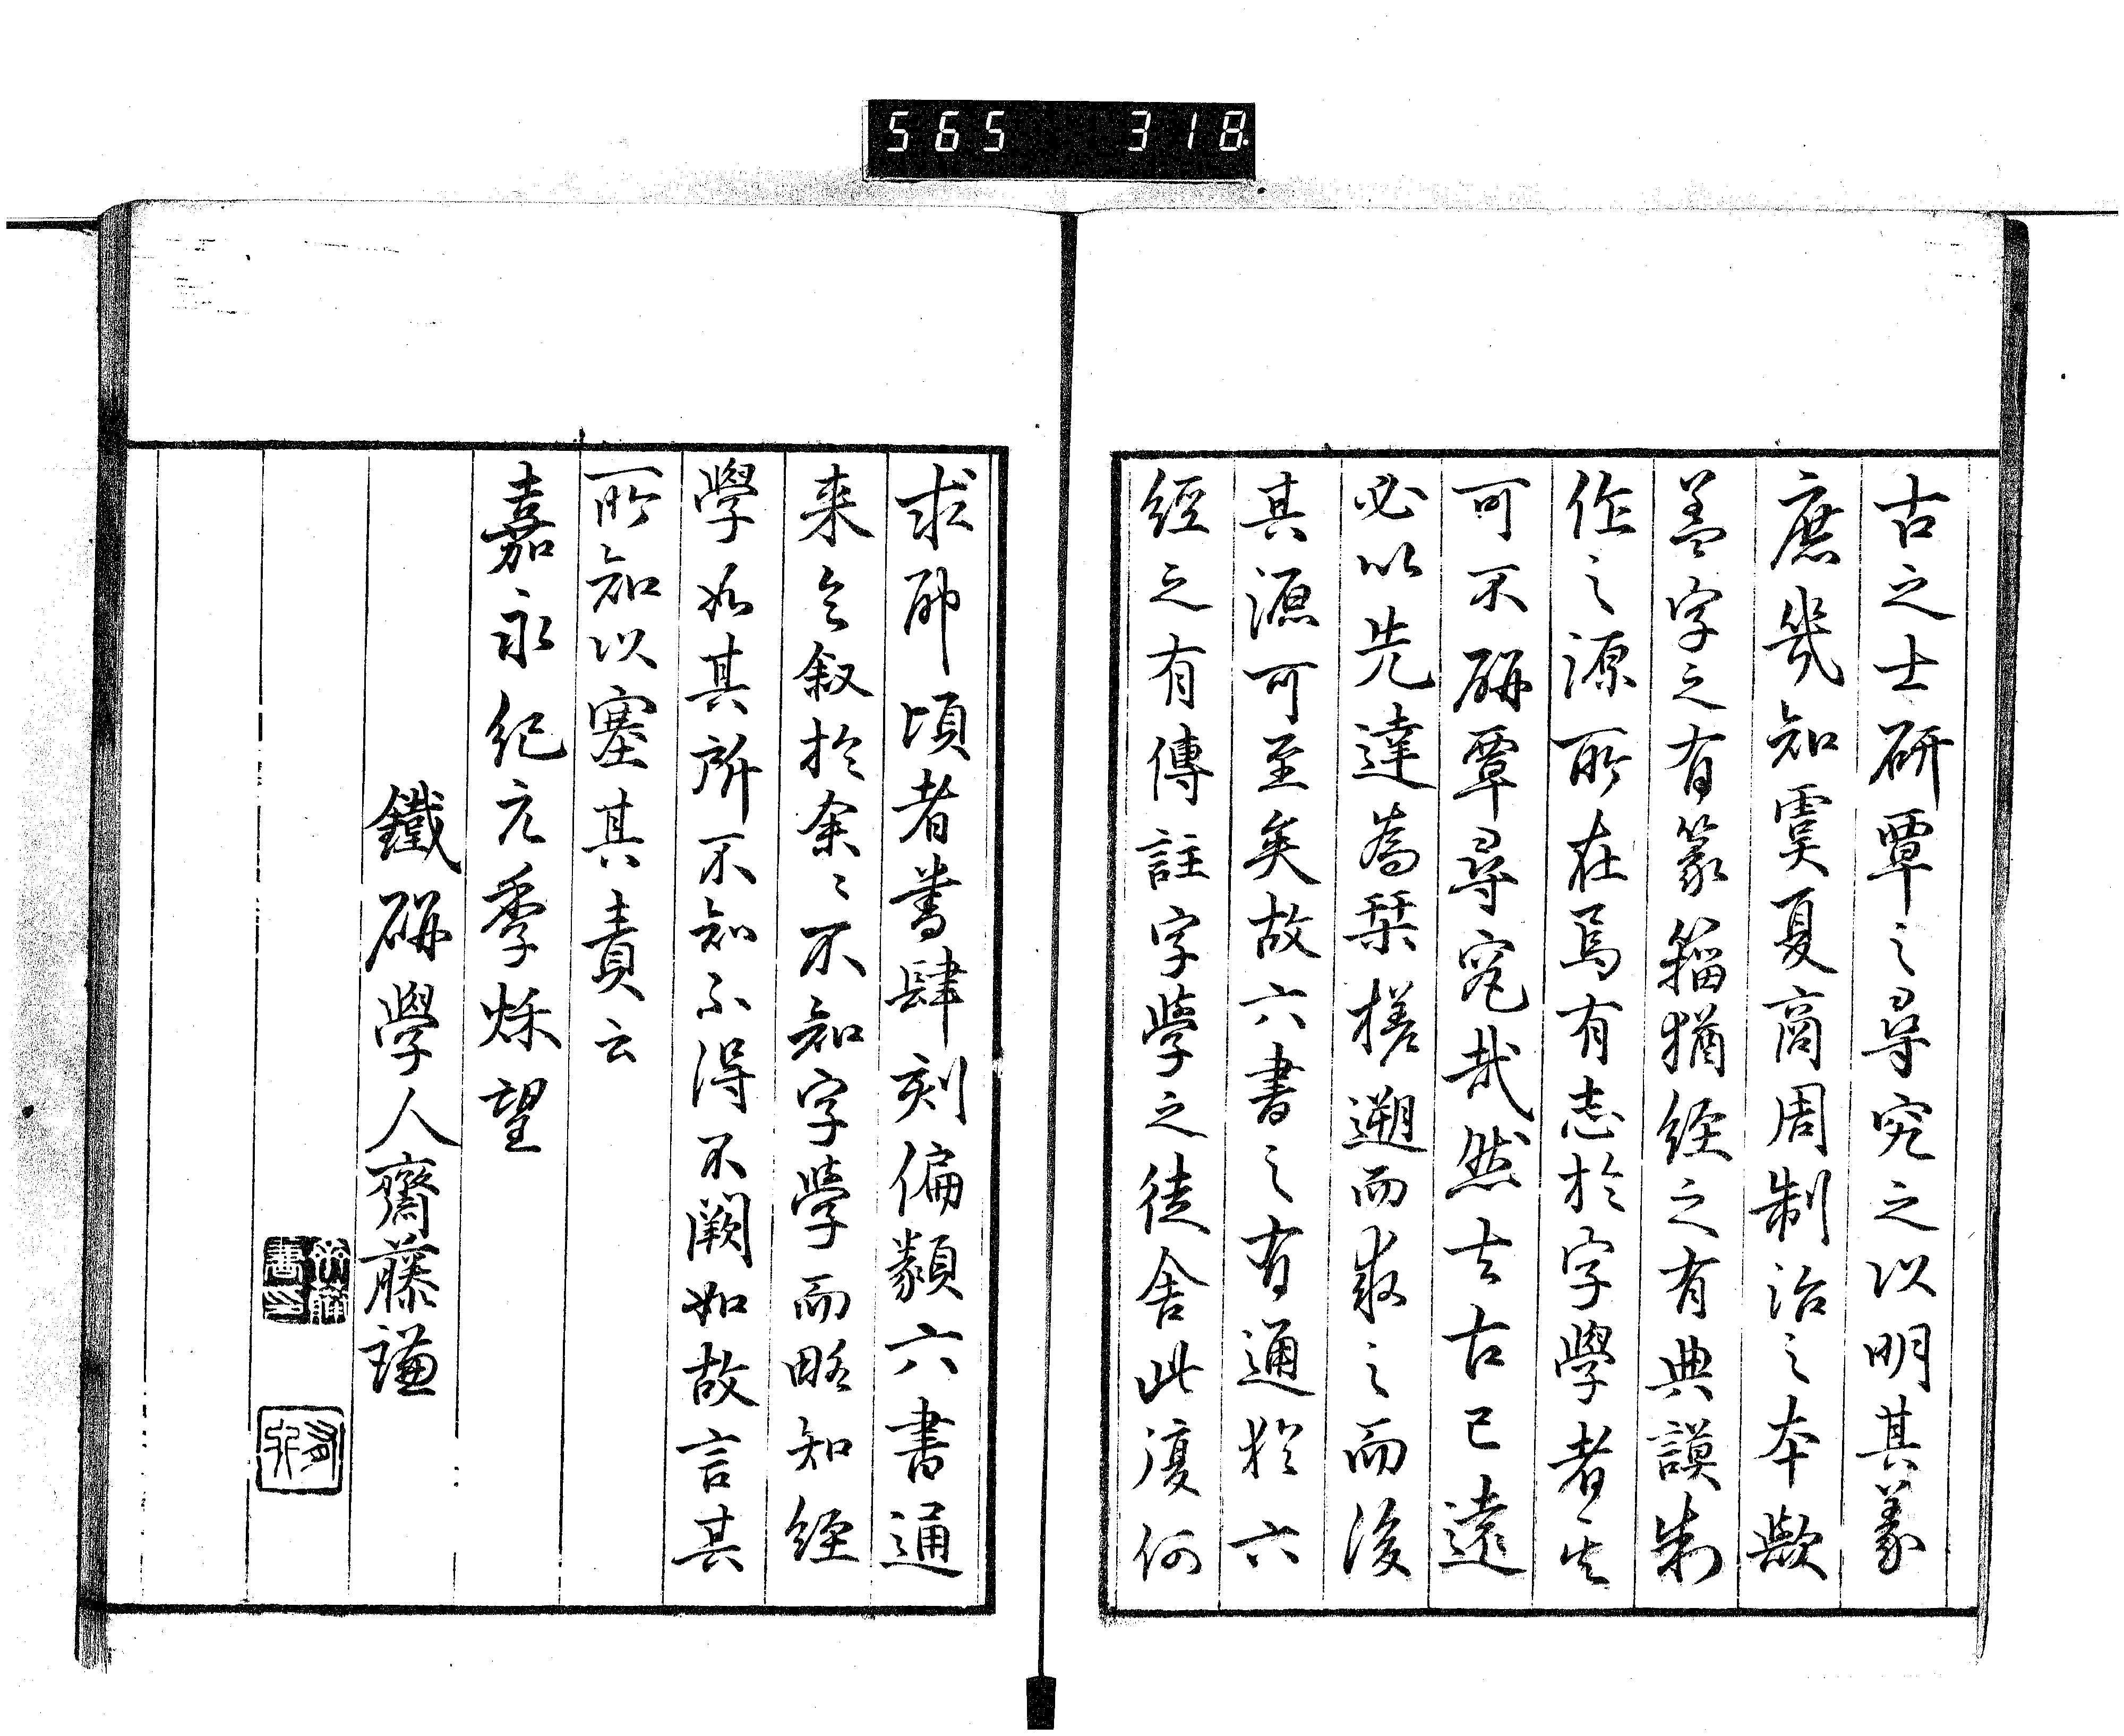 565 318
古之士研覃之尋究之以明其義
庶幾知虞夏商周制治之本歟
蓋字之有篆籀猶經之有典謨制
作之源所在焉有志於字學者其
可不研覃尋究哉然去古已遠
必以先達為栞槎遡而求之而後
其源可至矣故六書之有通於六
經之有傳註字學之徒舍此復何
求耶頃者書肆刻偏類六書通
来乞叙於余々不知字學而略知經
學如其所不知不得不闕如故言其
所知以塞其責云
嘉永紀元季烁望
鐵研學人齋藤謙